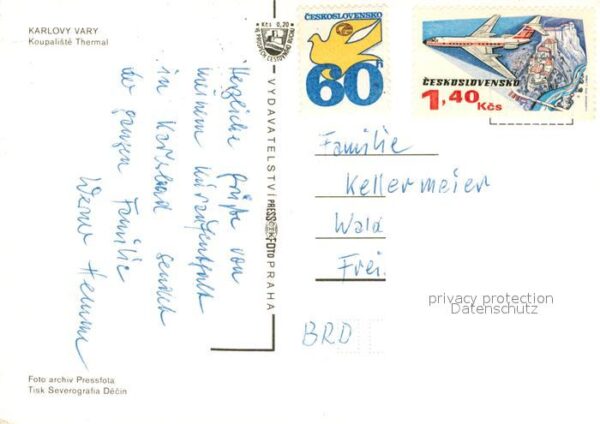 KARLOVY VARY
Koupaliště Thermal
Kčs 0,20
ČESKOSLOVENSKO
60h
ČESKOSLOVENSKO
1,40 Kčs
Herzliche Grüße von
meinem Kuraufenthalt
in Karlsbad sendet
der ganzen Familie
Werner
VYDAVATELSTVÍ PRESSFOTO PRAHA
Familie
Kellermeier
Wald
Frei.
BRD
privacy protection
Datenschutz
Foto archiv Pressfota
Tisk Severografia Děčín